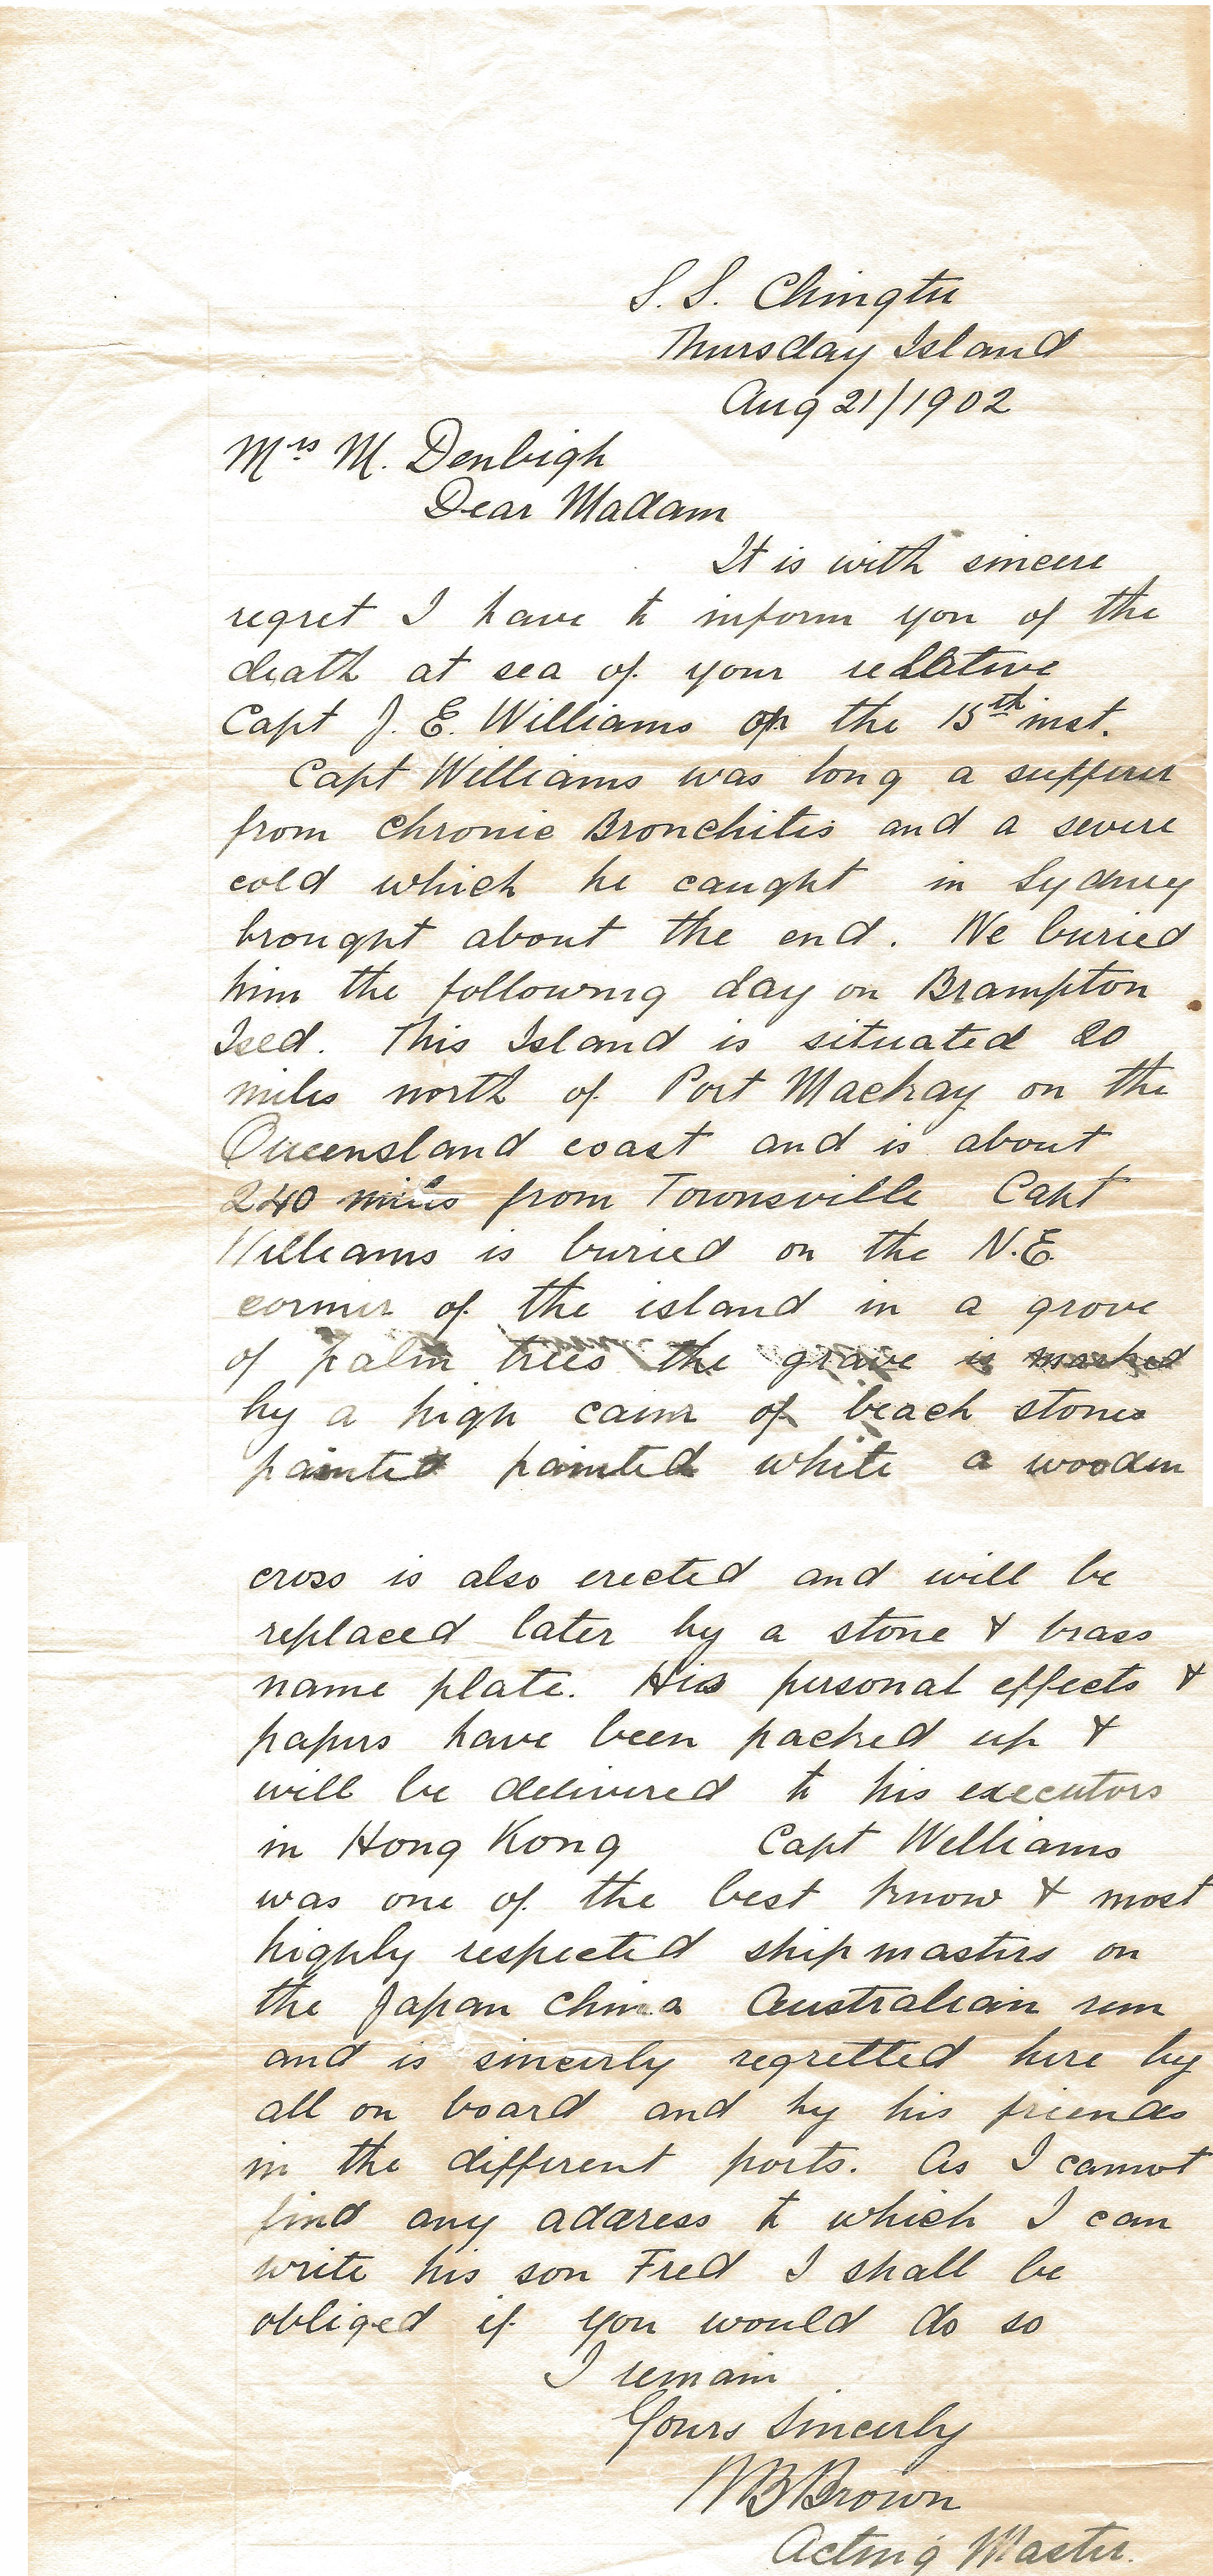 S. S. Chingtu
Thursday Island
Aug 21/1902
Mrs M. Denbigh
Dear Madam
It is with sincere
regret I have to inform you of the
death at sea of your relative
Capt J. E. Williams on the 15th inst.
Capt Williams was long a sufferer
from Chronic Bronchitis and a severe
cold which he caught in Sydney
brought about the end. We buried
him the following day on Brampton
Isld. This Island is situated 20
miles north of Port Mackay on the
Queensland coast and is about
240 miles from Townsville Capt
Williams is buried on the N.E.
corner of the island in a grove
of palm trees the grave is marked
by a high cairn of beach stones
painted painted white a wooden
cross is also erected and will be
replaced later by a stone & brass
name plate. His personal effects &
papers have been packed up &
will be delivered to his executors
in Hong Kong Capt Williams
was one of the best know & most
highly respected shipmasters on
the Japan China Australian run
and is sincerly regretted here by
all on board and by his friends
in the different ports. As I cannot
find any address to which I can
write his son Fred I shall be
obliged if you would do so
I remain
Yours Sincerly
WB Brown
Acting Master.